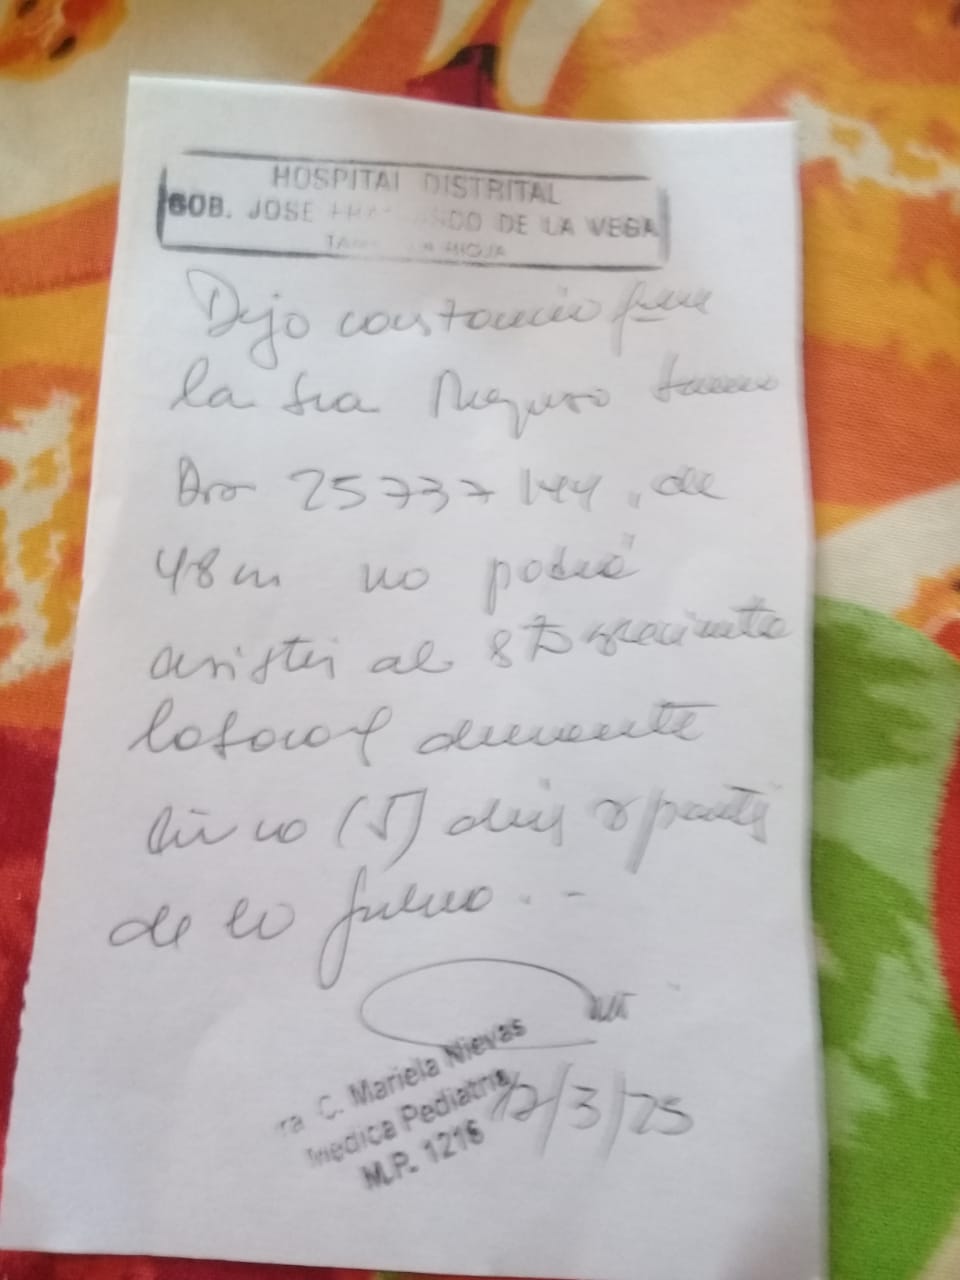 HOSPITAL DISTRITAL
GOB. JOSE DE LA VEGA
RIOJA
Dejo constancia que
la Sra
25737144, de
48 no podrá
asistir al
laboral durante
cinco (5) días a partir
de la fecha. -
C. Mariela Nievas
Medica Pediatria
M.P. 1216
12/3/25